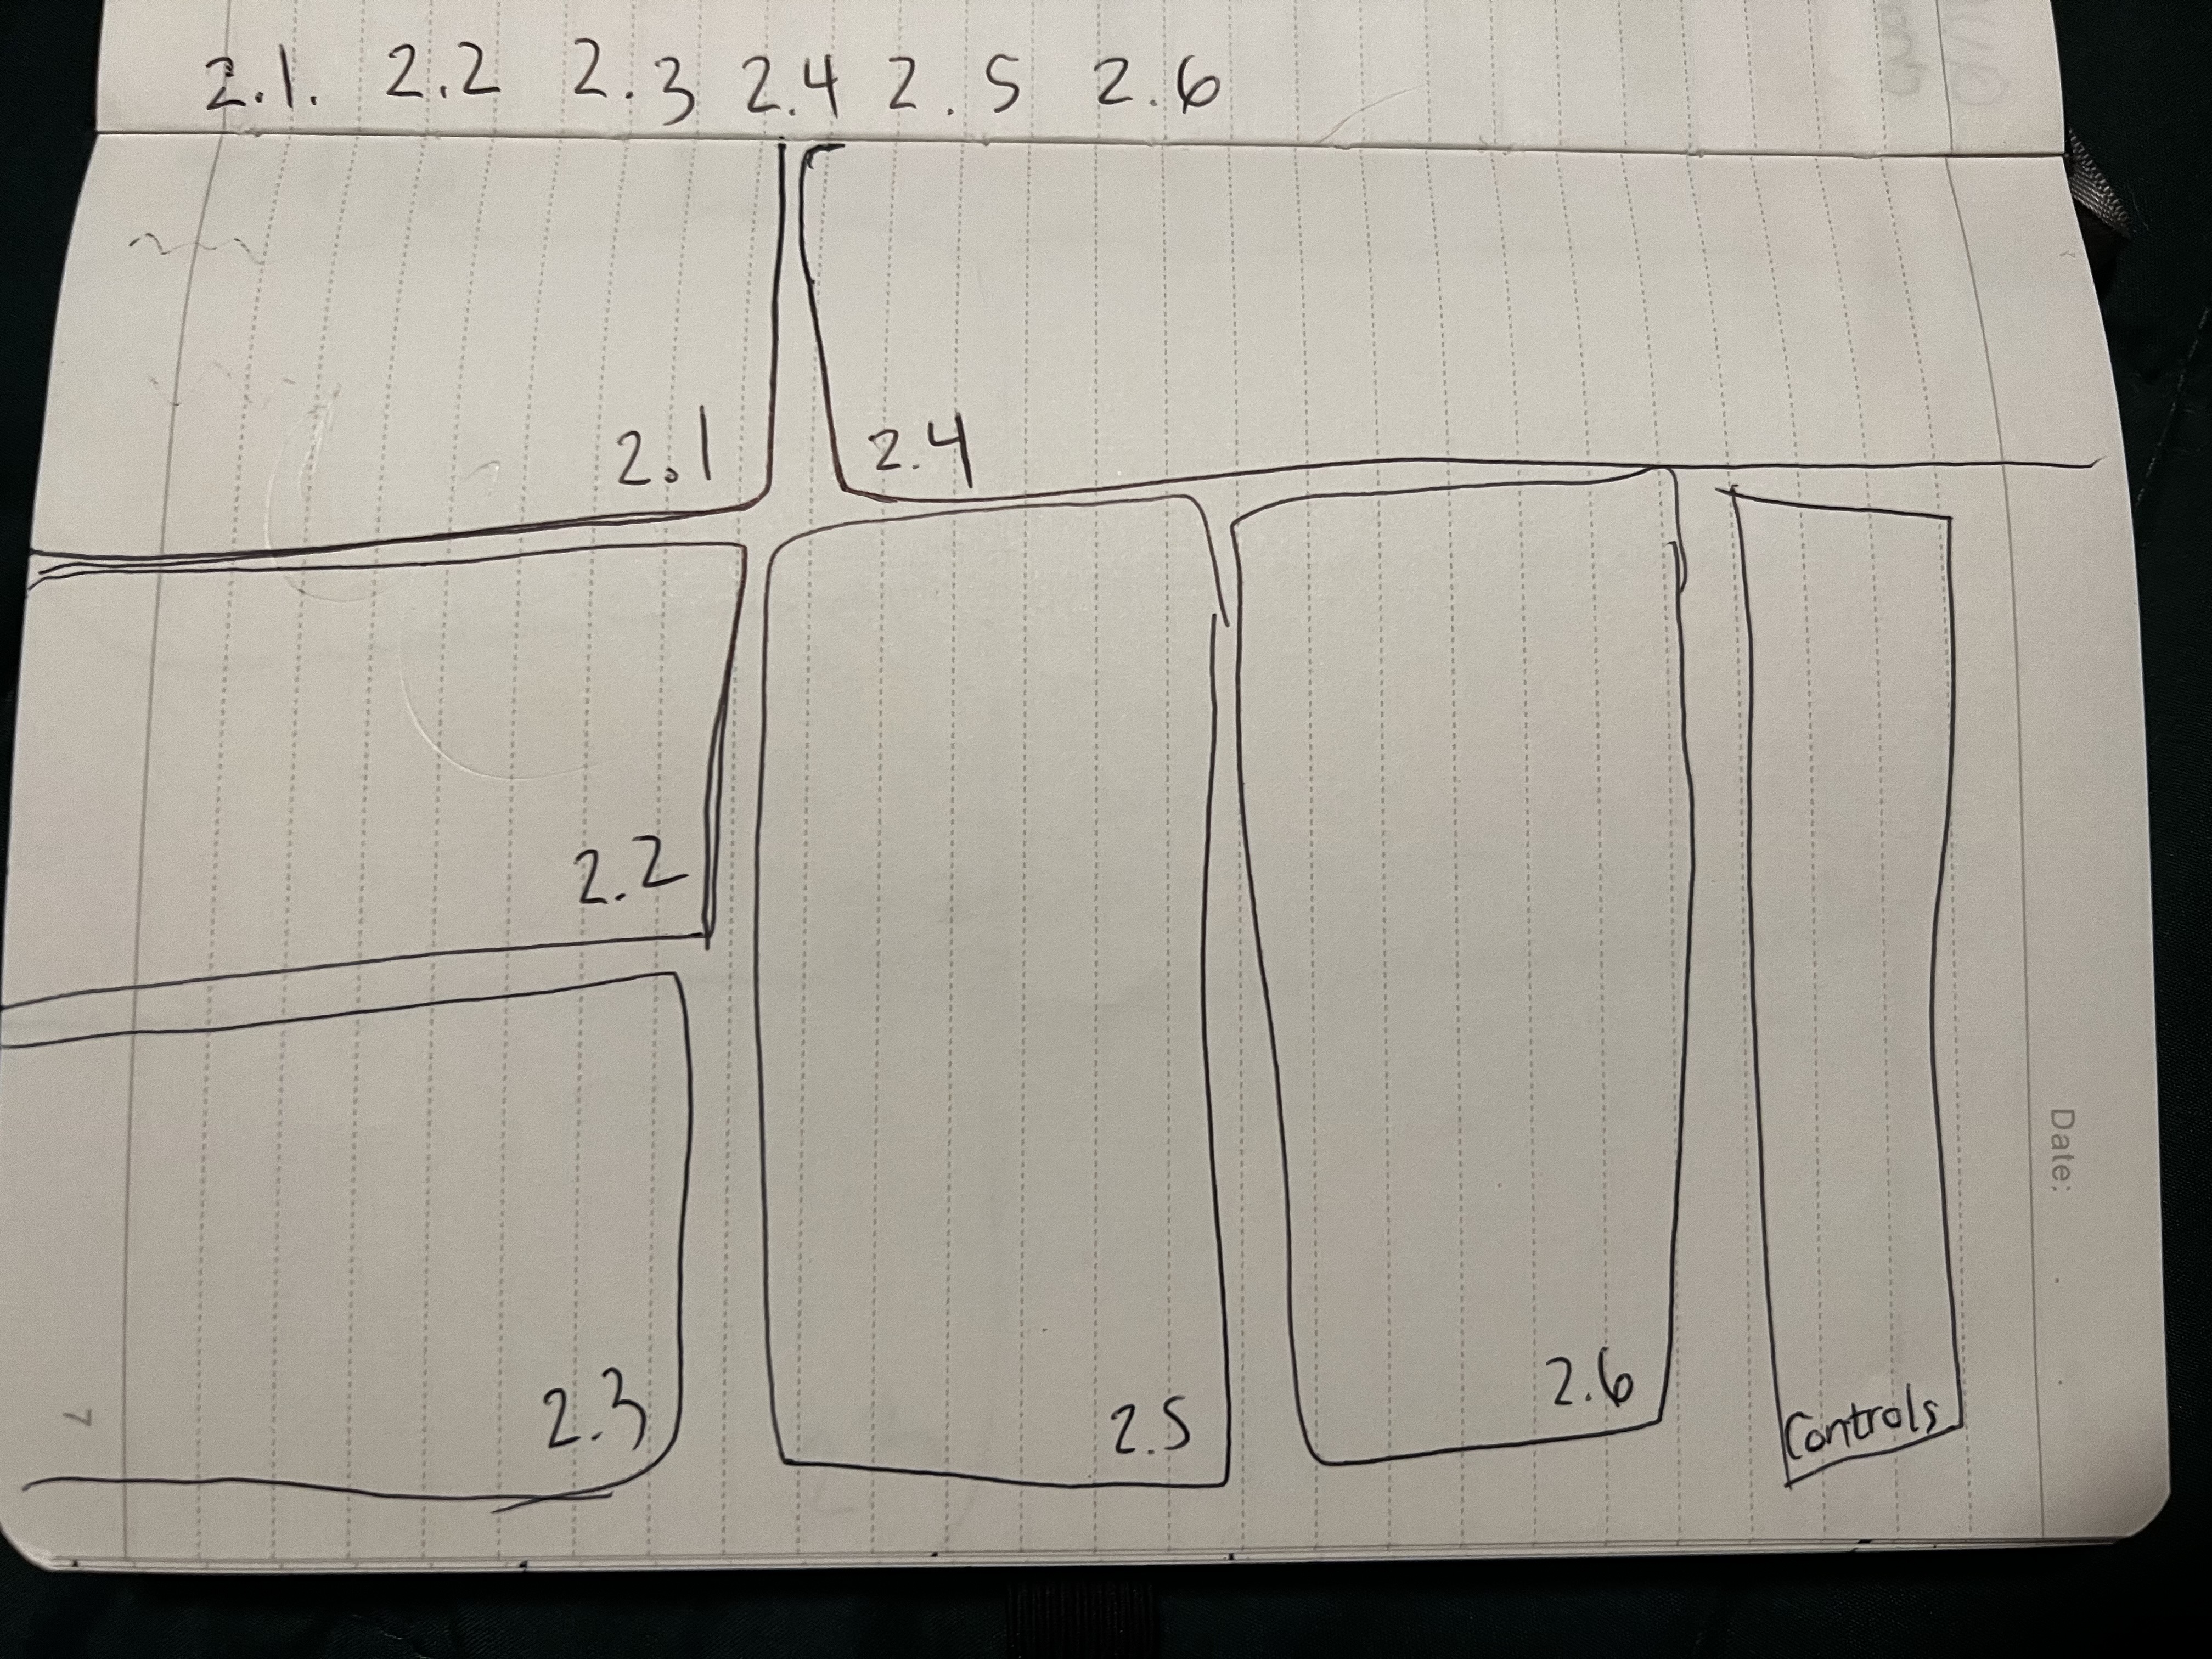 2.1. 2.2 2.3 2.4 2.5 2.6
2.1 2.4
2.2
2.3 2.5 2.6 Controls
Date:
7